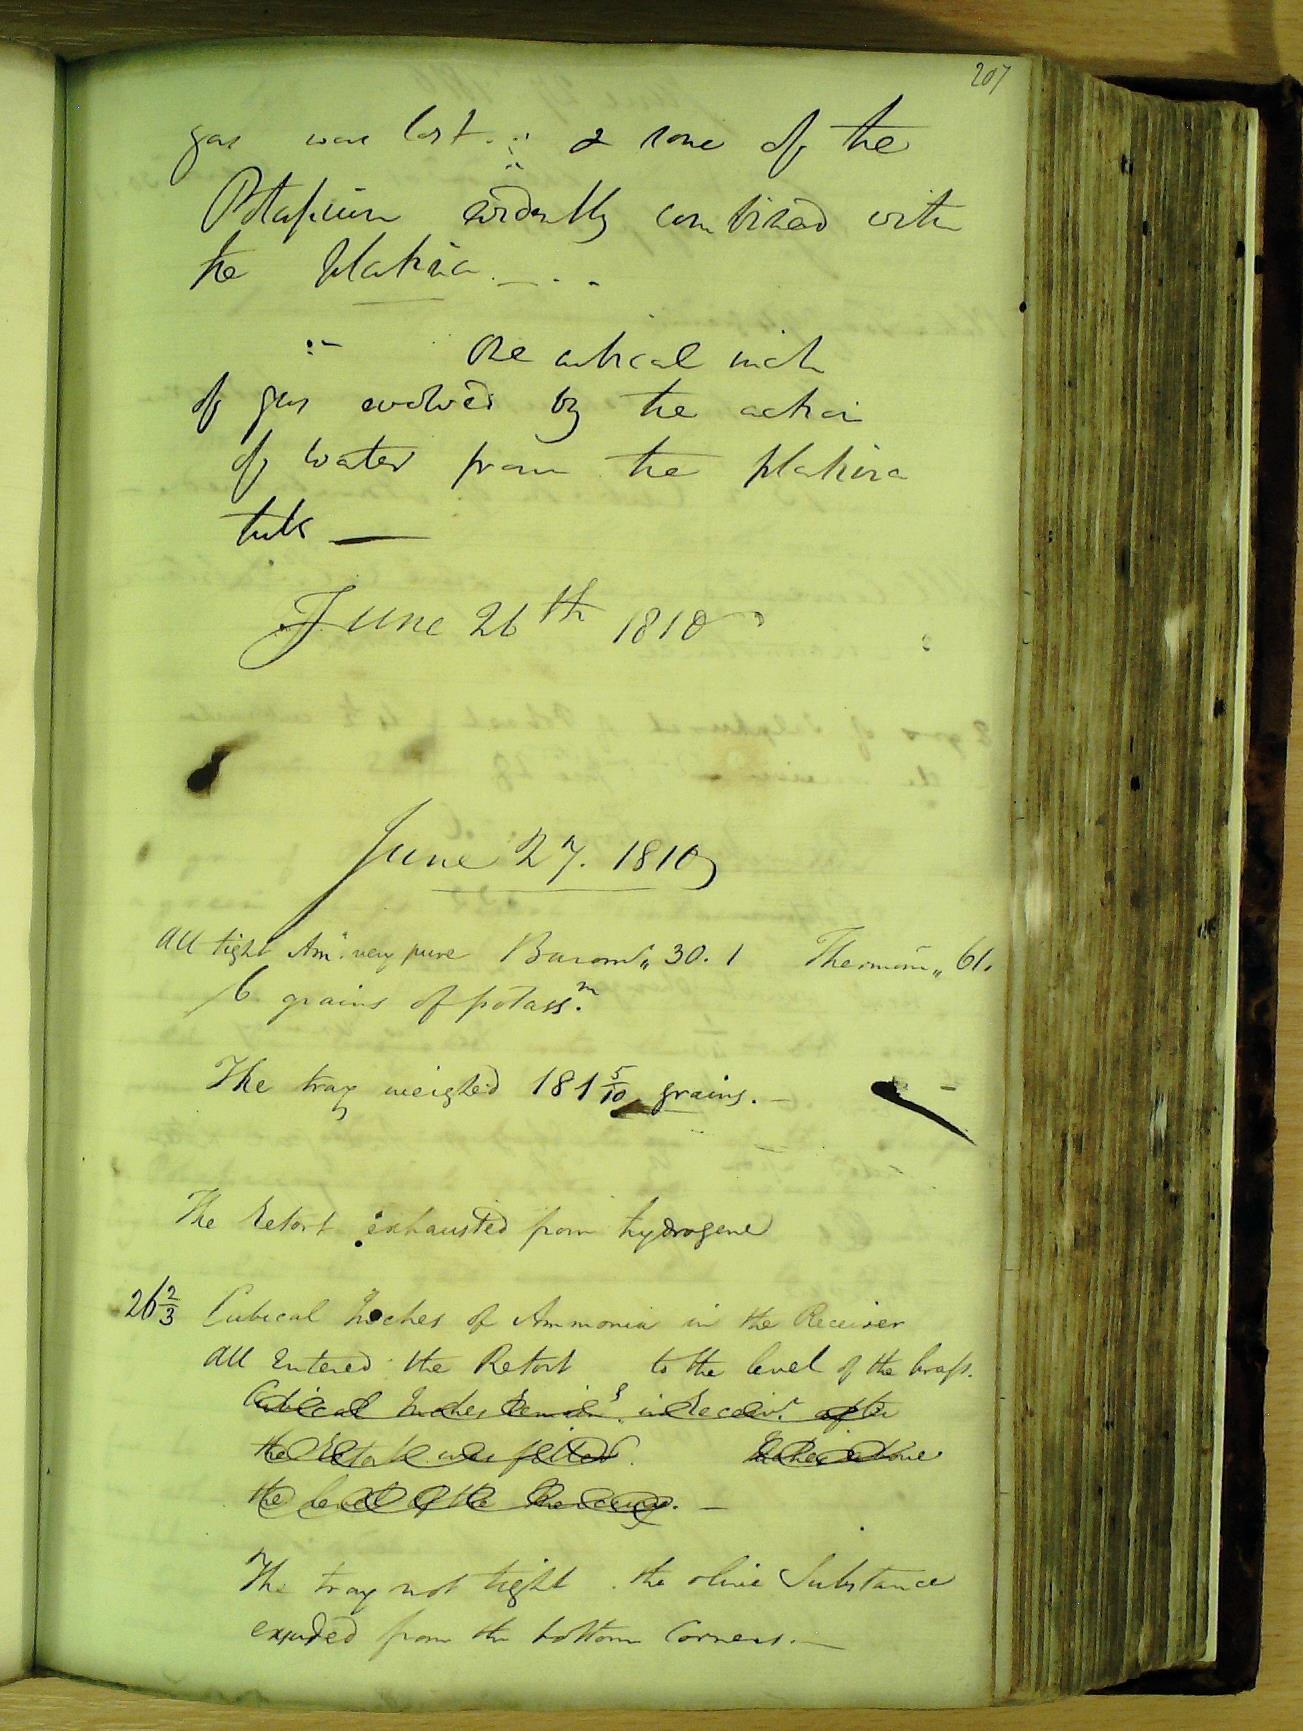 207
gas was lost. & some of the
Potassium evidently combined with
the platina
One cubical inch
of gas evolved by the action
of water from the platina
tube —
June 26th 1810
June 27. 1810
All tight Amm. very pure Barom" 30.1 Thermom" 61.
6 grains of potass.m
The tray weighed 181 5/10 grains. –
The Retort exhausted from hydrogene
26 2/3 Cubical Inches of Ammonia in the Receiver
All Entered the Retort to the level of the brass.
Cubical Inches remaing. in Receivr. after
the Retort was filled. Inches above
the level of the Mercury. –
The tray not tight. the olive Substance
exuded from the bottom Corners. —